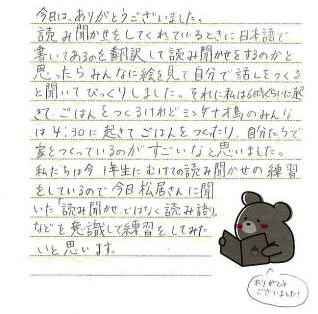 今日は、ありがとうございました。
読み聞かせをしてくれているときに日本語で
書いてあるのを翻訳して読み聞かせをするのかと
思ったらみんなに絵を見て自分で話しをつくる
と聞いてびっくりしました。それに私は6時ぐらいに起
きて ごはんをつくるけれどミンダナオ島のみんな
は4:30に 起きて ごはんをつくったり、自分たちで
家をつくっているのが すごいなと思いました。
私たちは今 1年生に むけての読み聞かせの 練習
をしているので今日松居さんに聞
いた「読み聞かせ」ではなく「読み語り」
などを意識して練習をしてみた
いと思います。
ありがとう
ございました!